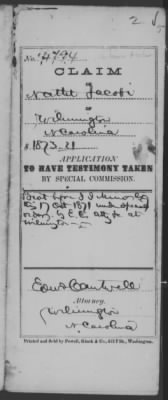 2
No. 4794
CLAIM
OF
Nathl Jacobi
OF
Wilmington
N Carolina
$1873.21
APPLICATION
TO HAVE TESTIMONY TAKEN
BY SPECIAL COMMISSION.
17 Oct 1871
Wilmington
Edwd Cantwell
Attorney.
Wilmington
N. Carolina
Printed and Sold by Powell, Ginck & Co., 632 F St., Washington.